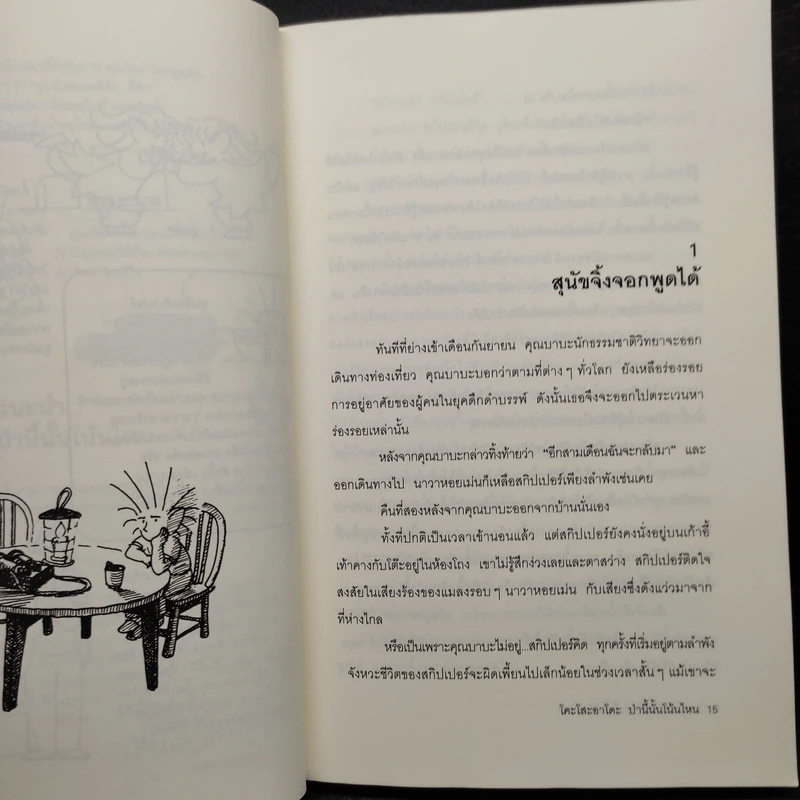 1
สุนัขจิ้งจอกพูดได้
ทันทีที่ย่างเข้าเดือนกันยายน คุณบาบะนักธรรมชาติวิทยาจะออก
เดินทางท่องเที่ยว คุณบาบะบอกว่าตามที่ต่างๆ ทั่วโลก ยังเหลือร่องรอย
การอยู่อาศัยของผู้คนในยุคดึกดำบรรพ์ ดังนั้นเธอจึงจะออกไปตระเวนหา
ร่องรอยเหล่านั้น
หลังจากคุณบาบะกล่าวทิ้งท้ายว่า "อีกสามเดือนฉันจะกลับมา" และ
ออกเดินทางไป นาวาหอยเม่นก็เหลือสกิปเปอร์เพียงลำพังเช่นเคย
คืนที่สองหลังจากคุณบาบะออกจากบ้านนั่นเอง
ทั้งที่ปกติเป็นเวลาเข้านอนแล้ว แต่สกิปเปอร์ยังคงนั่งอยู่บนเก้าอี้
เท้าคางกับโต๊ะอยู่ในห้องโถง เขาไม่รู้สึกง่วงเลยและตาสว่าง สกิปเปอร์ติดใจ
สงสัยในเสียงร้องของแมลงรอบๆ นาวาหอยเม่น กับเสียงซึ่งดังแว่วมาจาก
ที่ห่างไกล
หรือเป็นเพราะคุณบาบะไม่อยู่...สกิปเปอร์คิด ทุกครั้งที่เริ่มอยู่ตามลำพัง
จังหวะชีวิตของสกิปเปอร์จะผิดเพี้ยนไปเล็กน้อยในช่วงเวลาสั้นๆ แม้เขาจะ
โคะโสะอาโดะ ป่านี้นั้นโน้นไหน 15